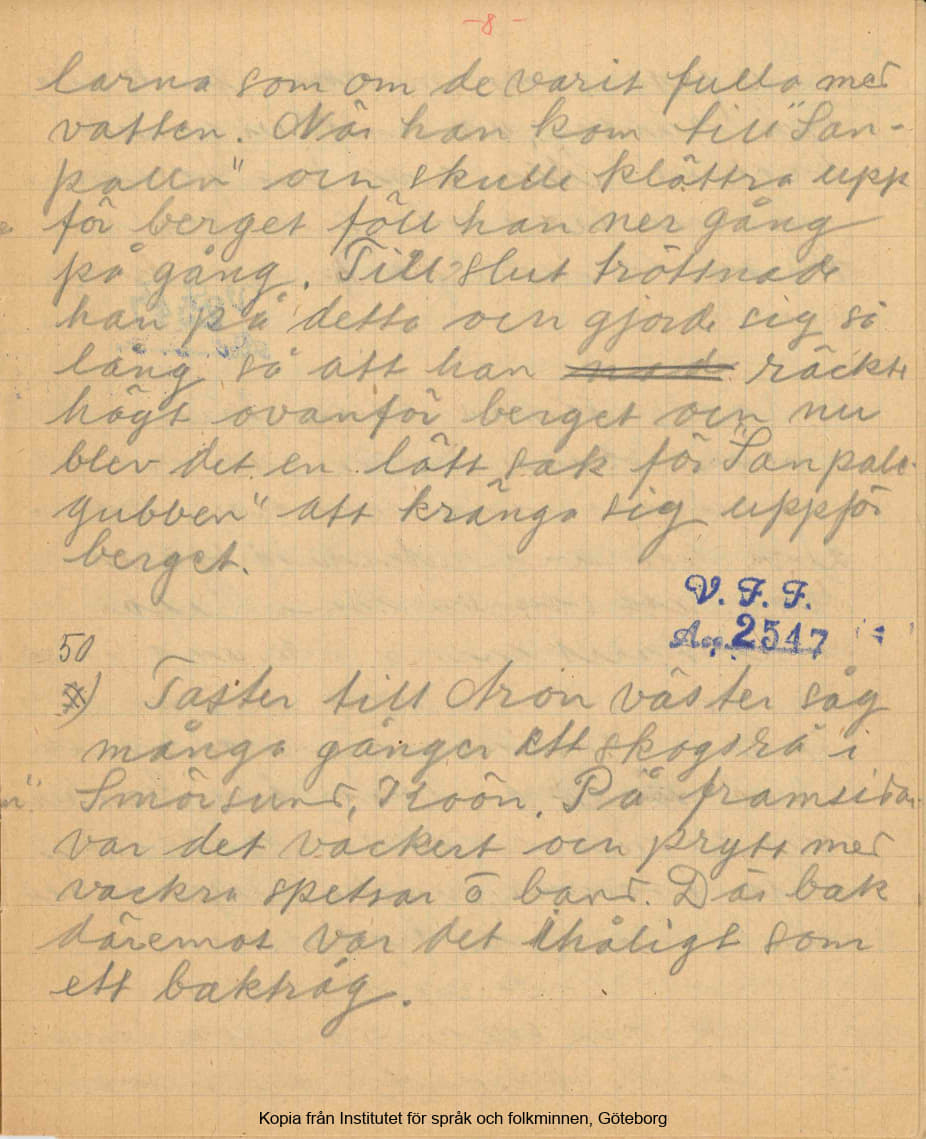 -8-
larna som om de varit fulla med
vatten. När han kom till "San-
pallen" och skulle klättra upp
för berget föll han ner gång
på gång. Till slut tröttnade
han på detta och gjorde sig så
lång så att han räckte
högt ovanför berget och nu
blev det en lätt sak för "Sanpale-
gubben" att kränga sig uppför
berget.
V. F. F.
Acc. 2547
50
) Faster till Aron väster såg
många gånger ett skogsrå i
Smörsund, Koön. På framsidan
var det vackert och prytt med
vackra spetsar o band. Där bak
däremot var det ihåligt som
ett baktråg.
Kopia från Institutet för språk och folkminnen, Göteborg